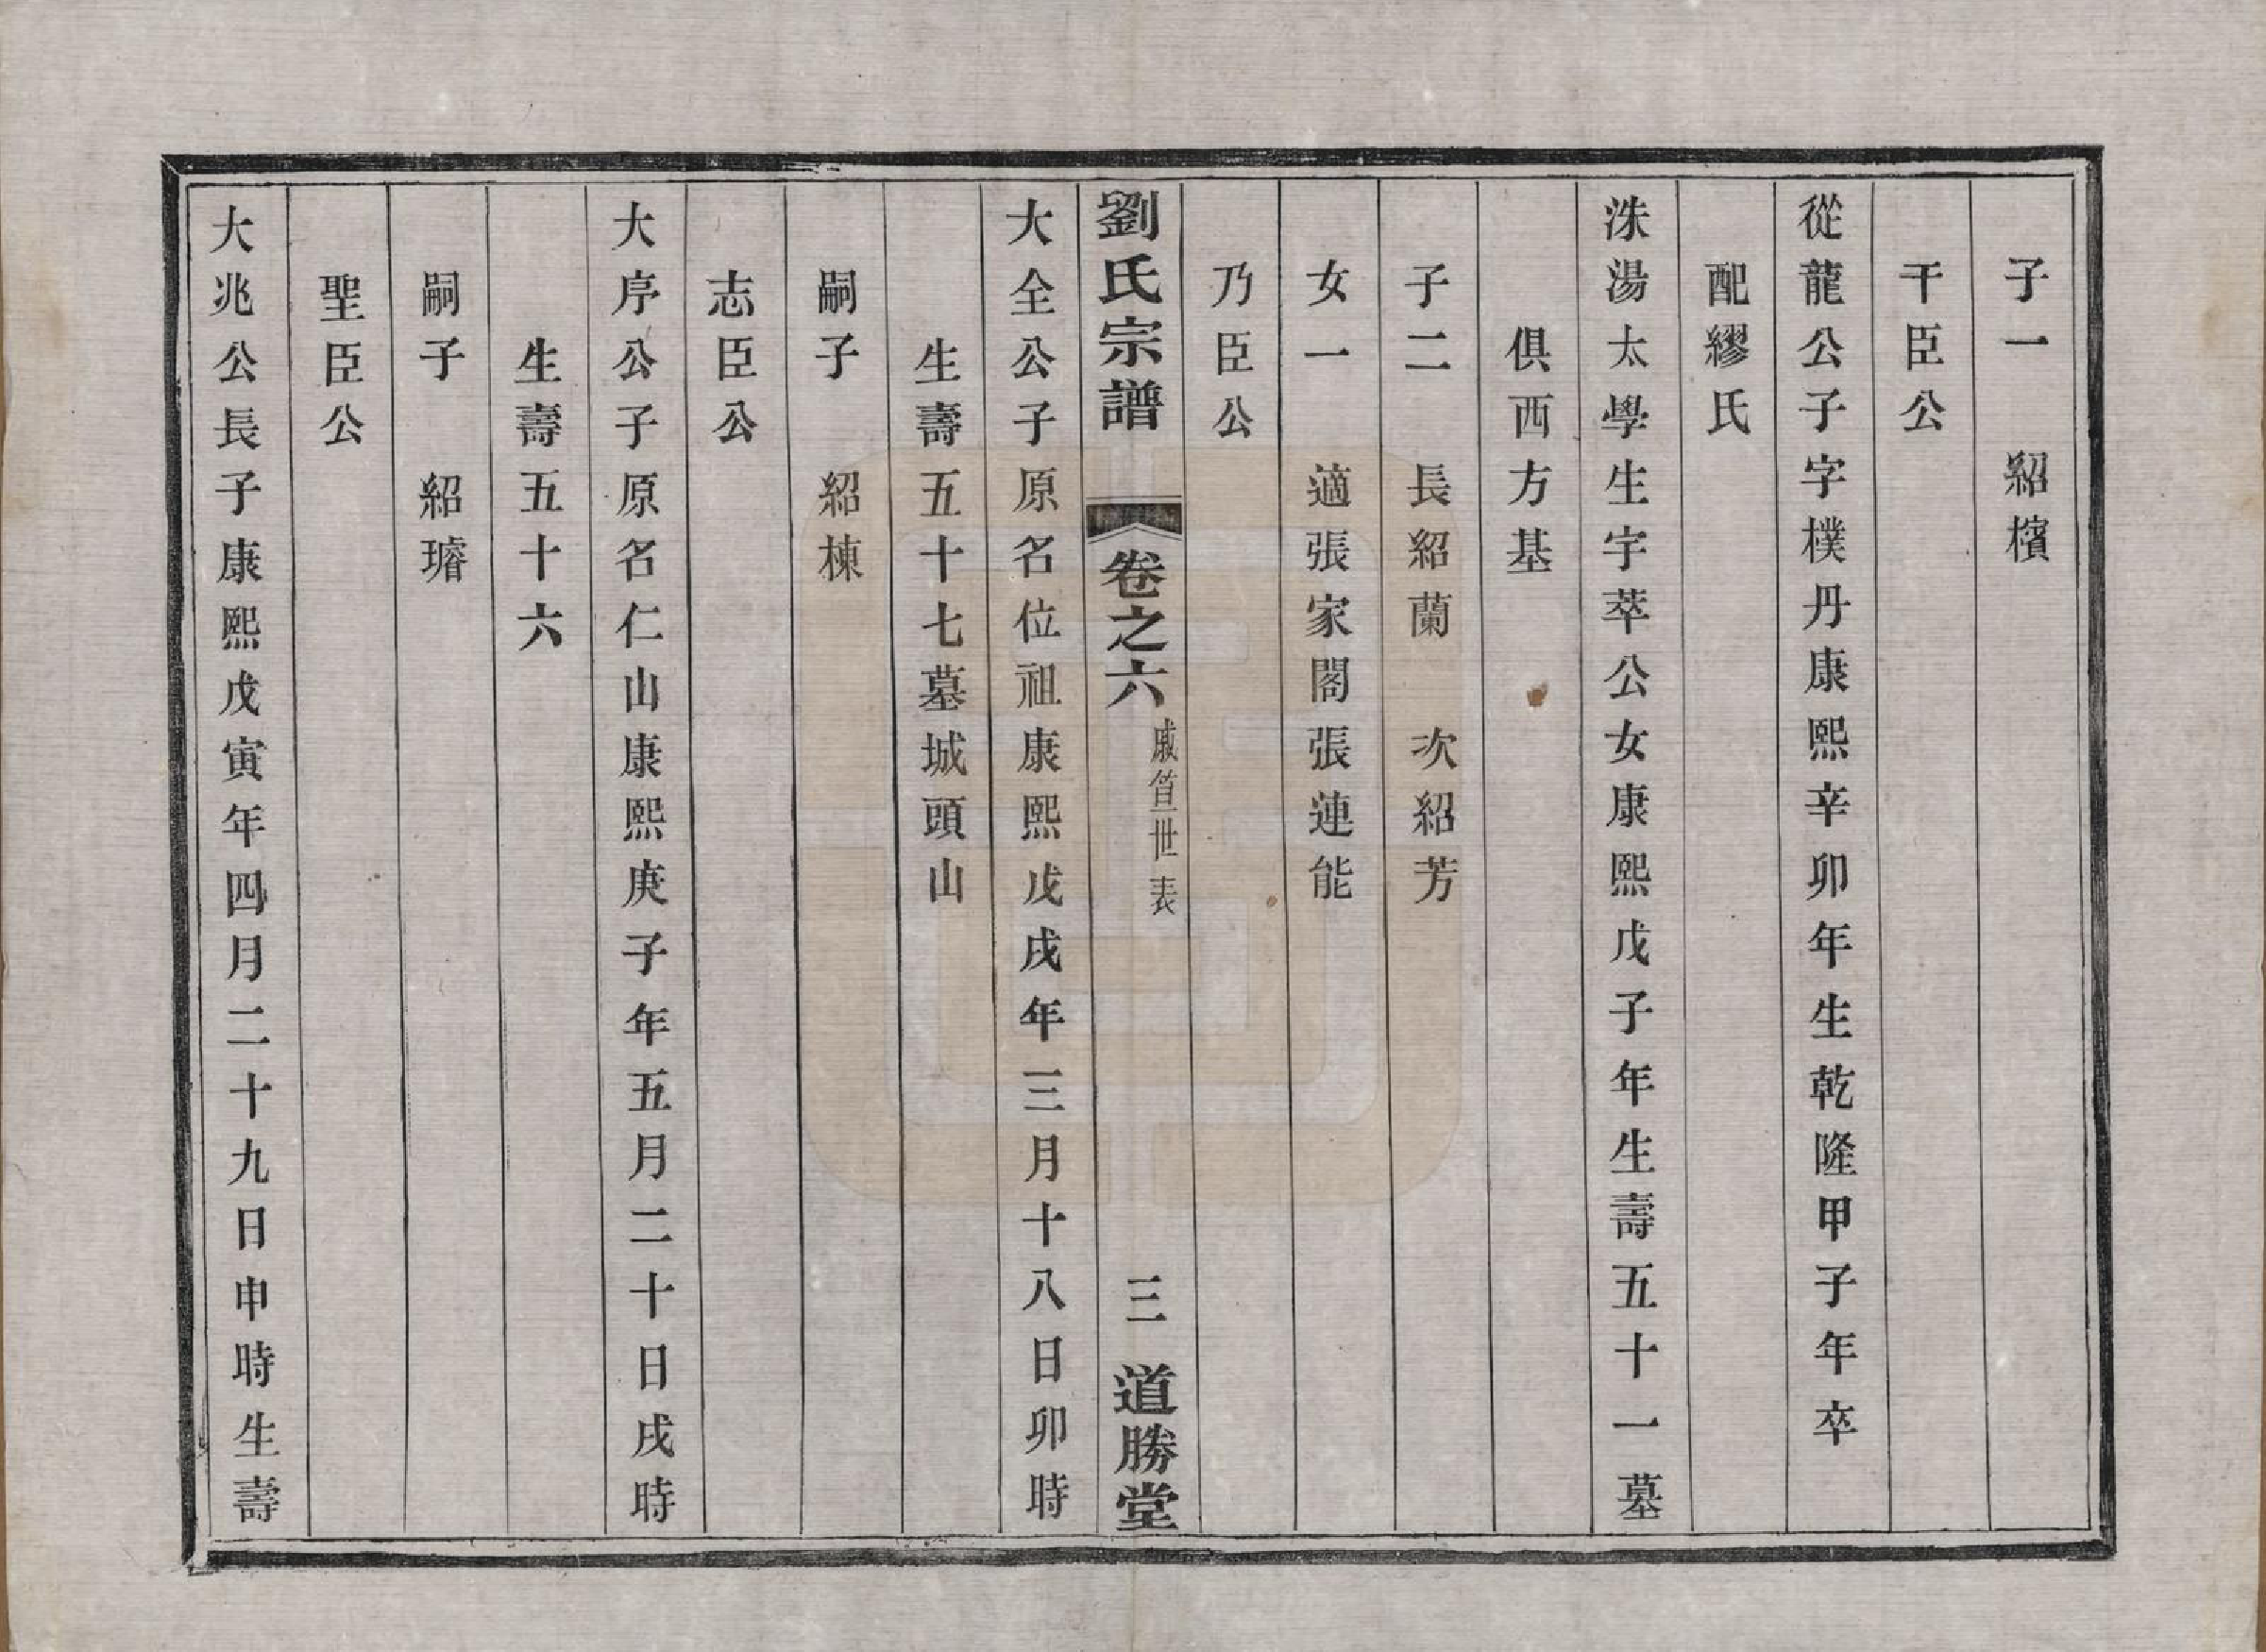 子一　紹檳
干臣公
從龍公子字樸丹康熙辛卯年生乾隆甲子年卒
配繆氏
洙湯太學生字萃公女康熙戊子年生壽五十一墓
俱西方基
子二　長紹蘭　次紹芳
女一　適張家閣張蓮能
乃臣公
劉氏宗譜　卷之六　戚笪世表　三　道勝堂
大全公子原名位祖康熙戊戌年三月十八日卯時
生壽五十七墓城頭山
嗣子　紹棟
志臣公
大序公子原名仁山康熙庚子年五月二十日戌時
生壽五十六
嗣子　紹璿
聖臣公
大兆公長子康熙戊寅年四月二十九日申時生壽